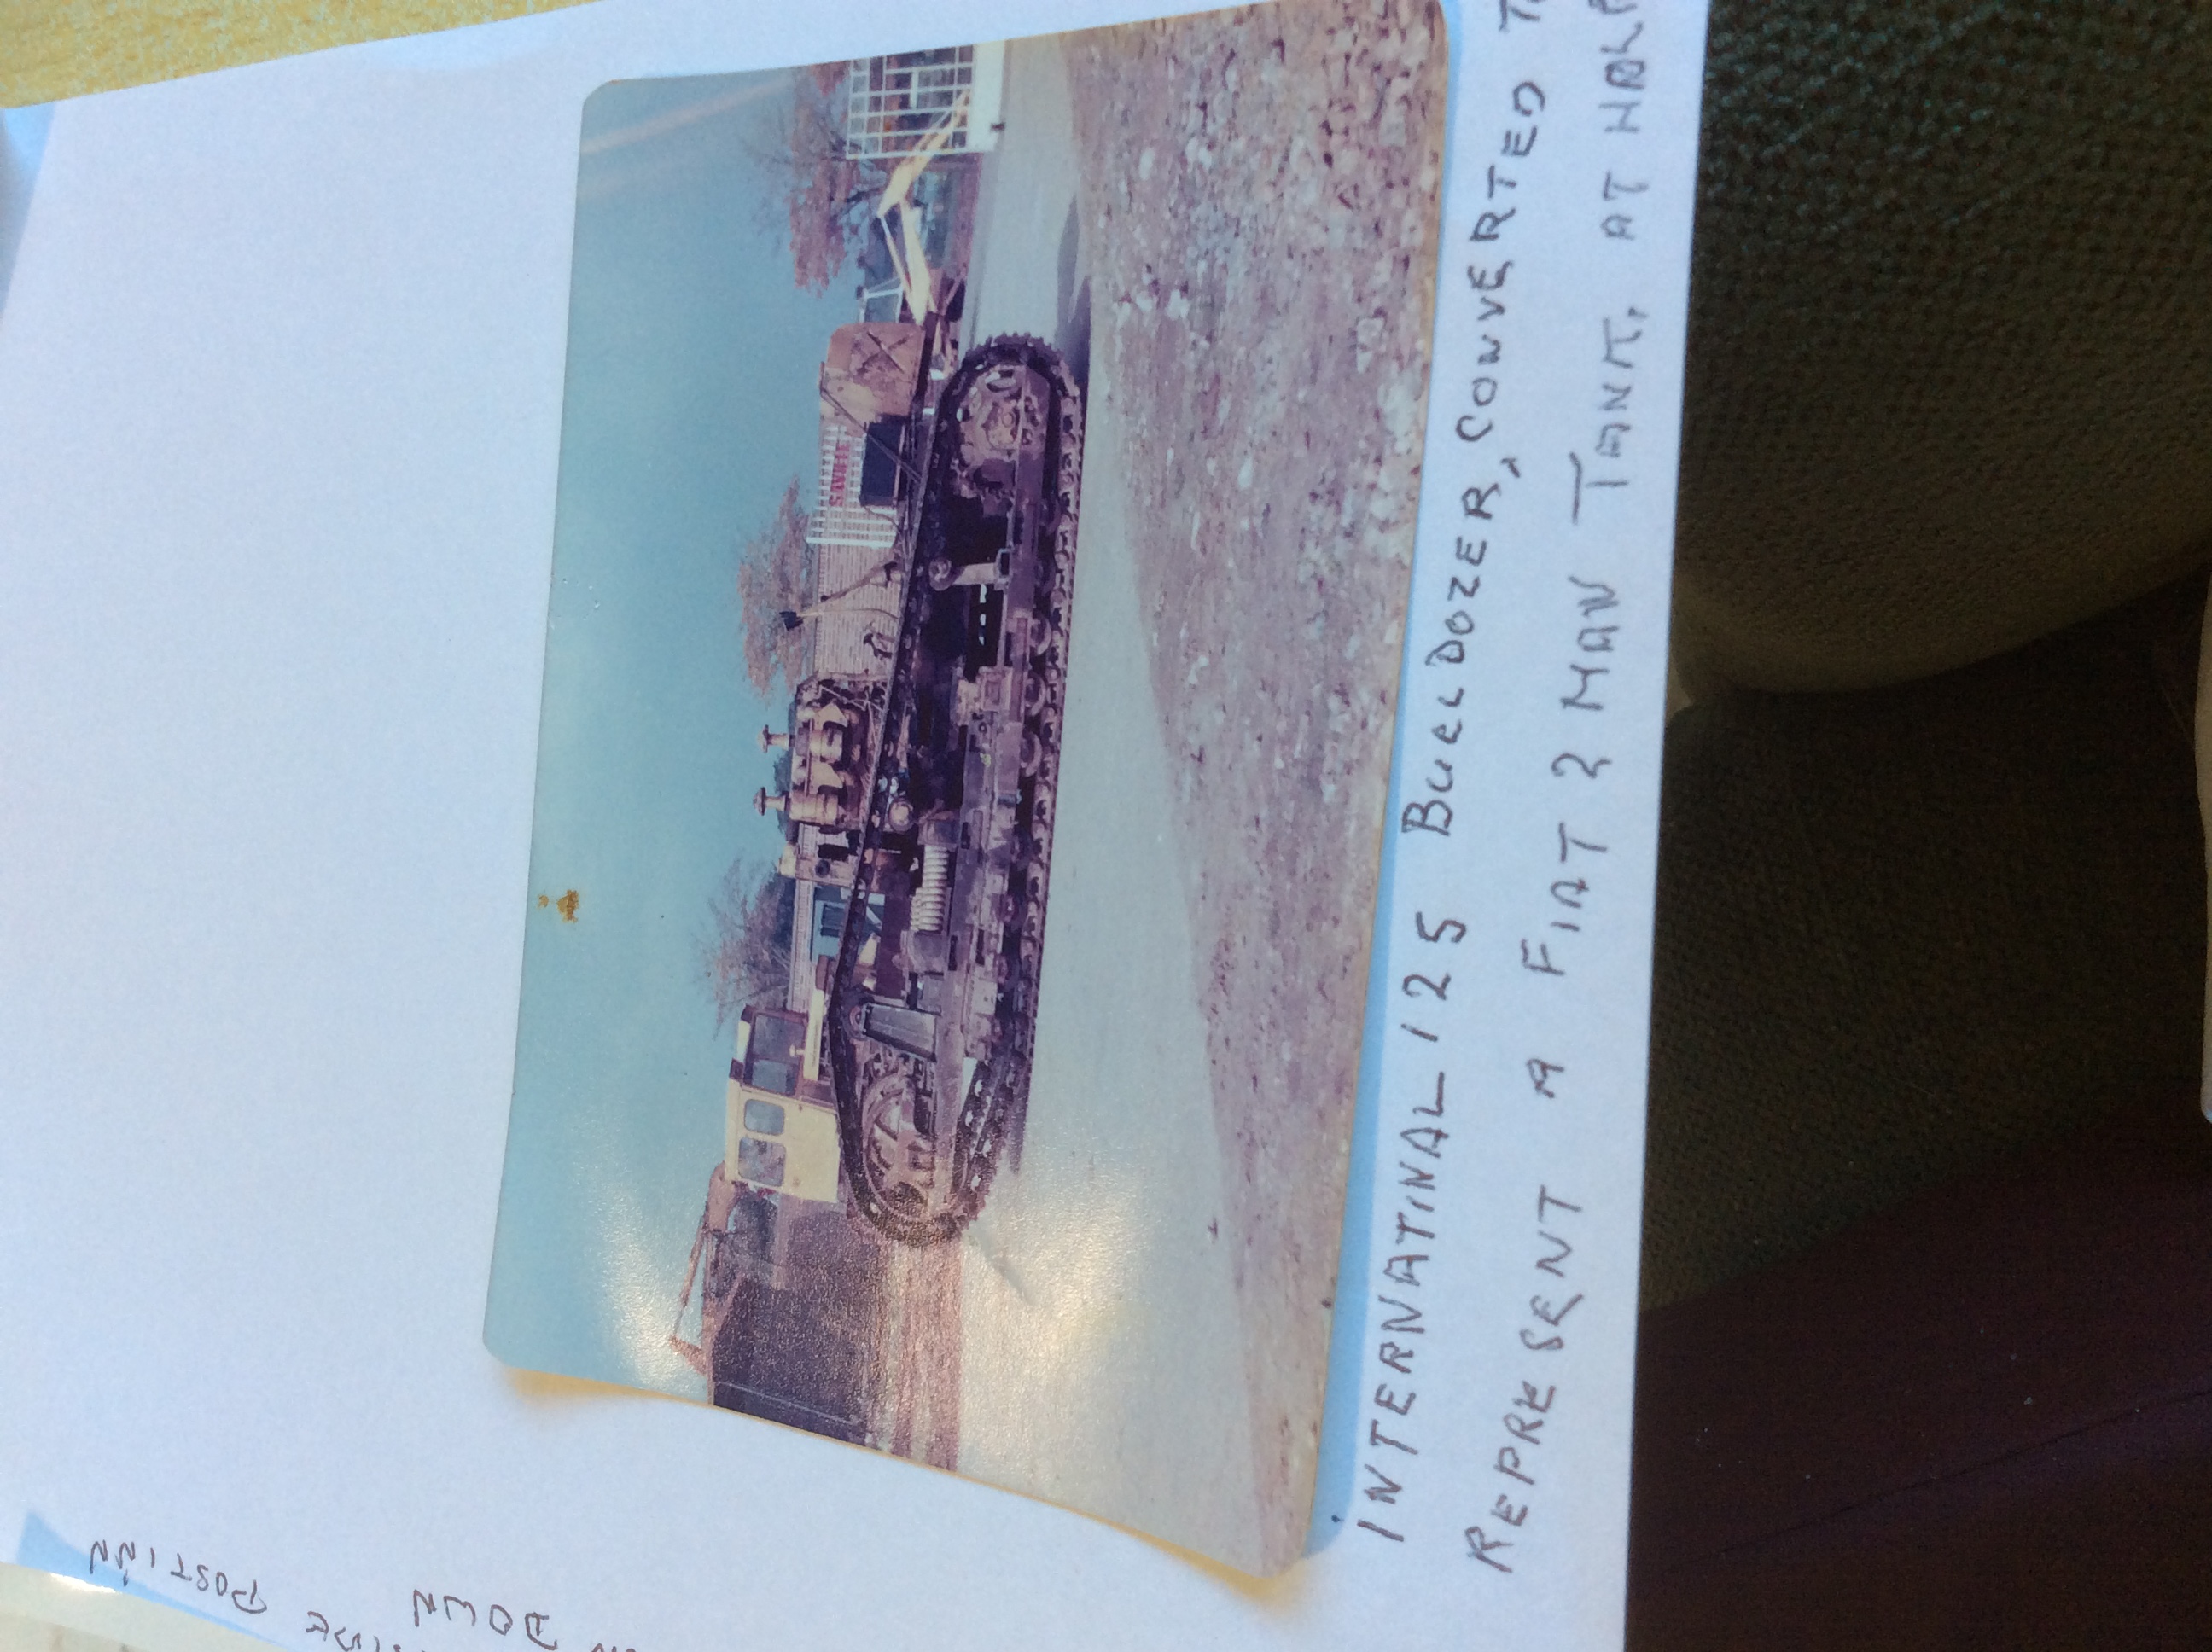 POSTINN
DOWN
SAVILLE
INTERNATINAL 125 BULLDOZER, CONVERTED
REPRESENT A FIAT 2 MAN TANK. AT HALF